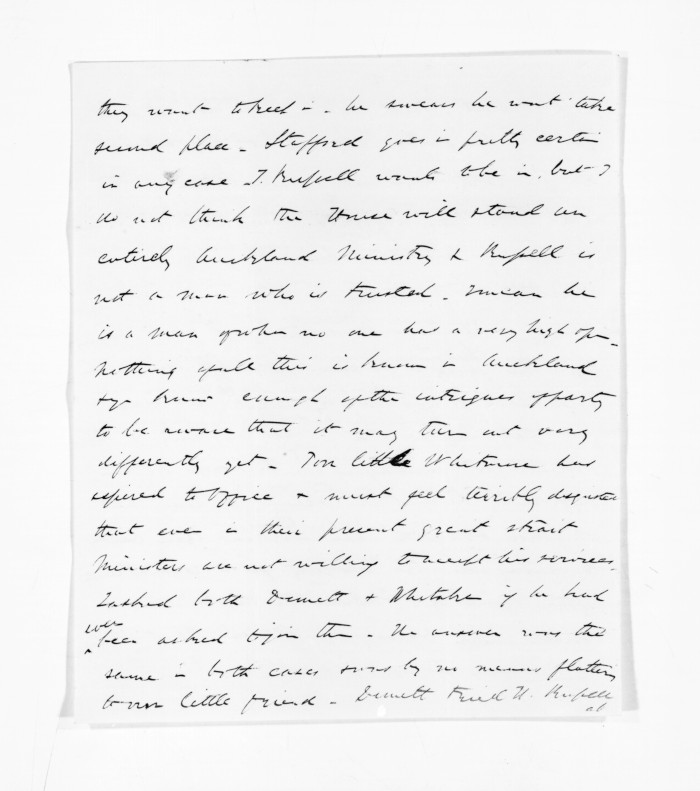 they want to keep in - he swears he wont take
second place - Stafford goes in pretty certain
in any case - T. Russell wants to be in, but I
do not think the House will stand an
entirely Auckland Ministry & Russell is
not a man who is trusted - I mean he
is a man of whom no one has a very high opn
Nothing of all this is known in Auckland
& you know enough of the intrigues of party
to be aware that it may turn out very
differently yet - Poor little Whitmore has
aspired to Office & must feel terribly disgusted
that even in their present great strait
Ministers are not willing to accept his services.
I asked both Domett & Whitaker if he had
ever
been asked to join them - The answer was the
same in both cases & was by no means flattering
to our little friend - Domett tried H. Russell